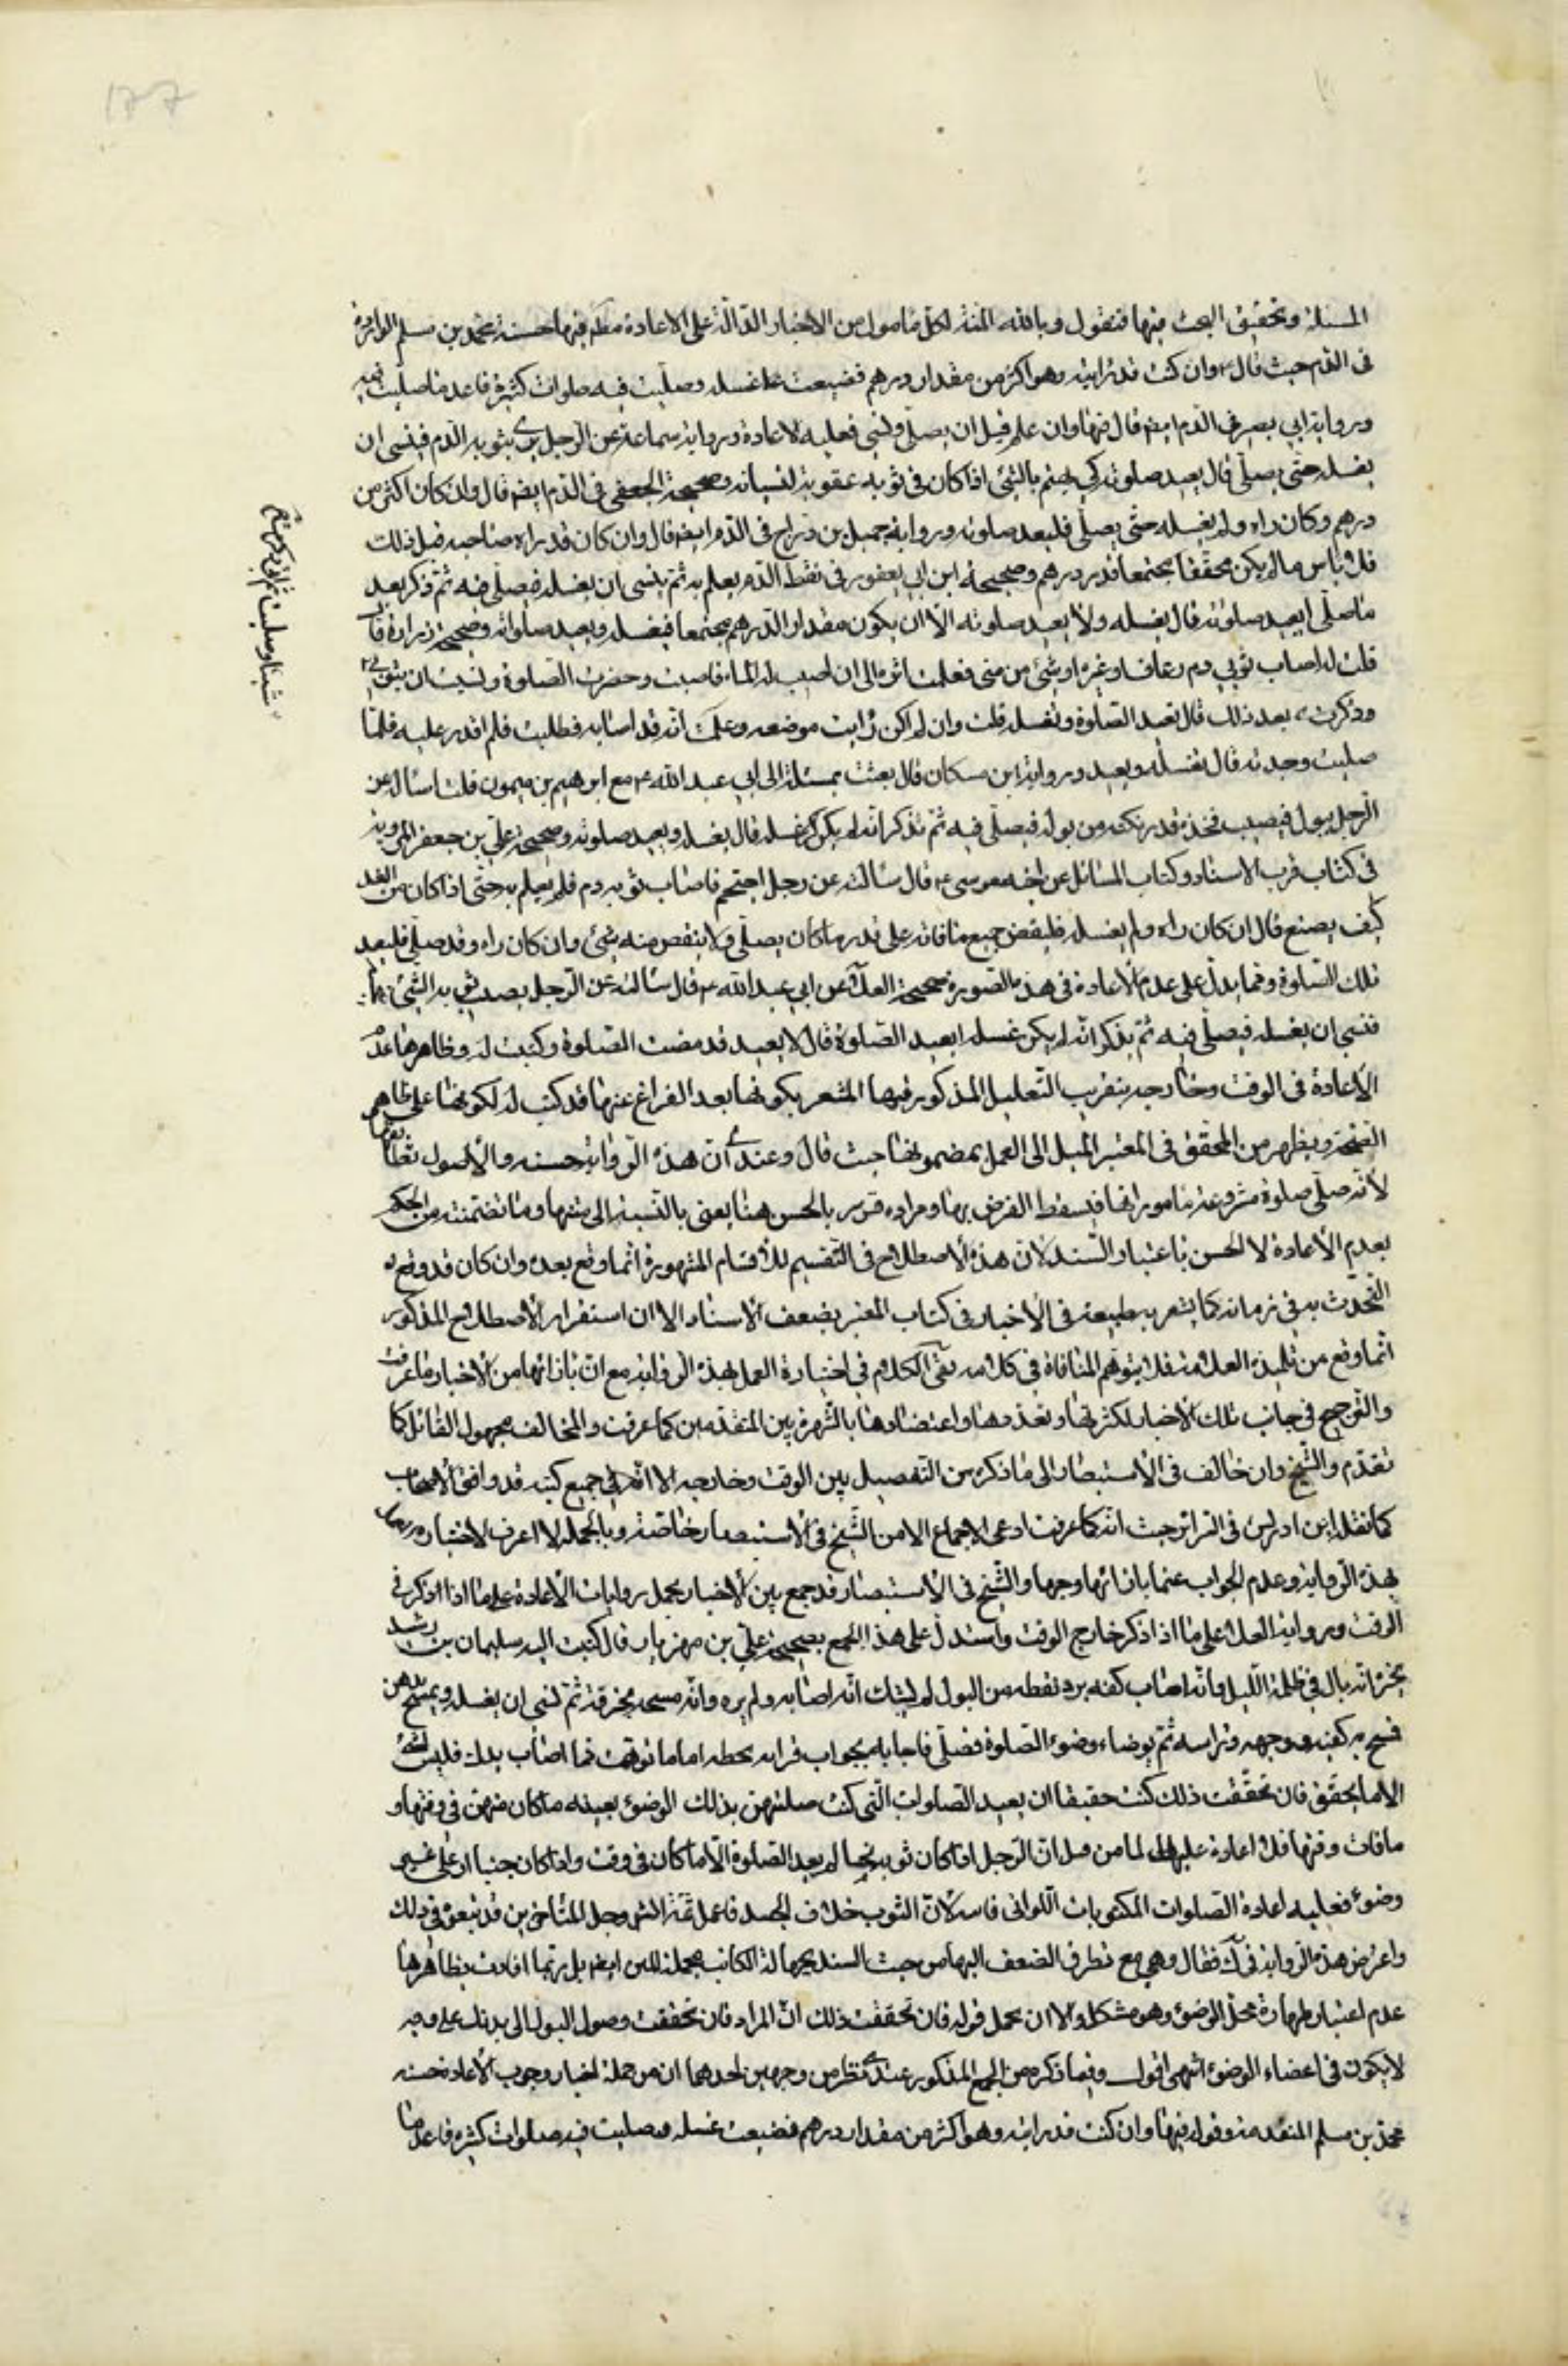 المسئلة وتحقيق البحث فيها فنقول وبالله المنة لكل مامول من الاخبار الدالة على الاعادة مطم فيها حسنة محمد بن مسلم الواردة
فى الدم حيث قال ع وان كنت قد رايته وهو اكثر من مقدار درهم فضيعت غسله وصليت فيه صلوات كثيرة فاعد ما صليت فيه
ورواية ابى بصير فى الدم ايضم قال فيها وان علم قبل ان يصلى ونسى فعليه الاعادة ورواية سماعة عن الرجل يرى بثوبه الدم فينسى ان
يغسله حتى يصلى قال يعيد صلوته كى يهتم بالشئ اذا كان فى ثوبه عقوبة لنسيانه وصحيحة الجعفى فى الدم ايضم قال وان كان اكثر من
درهم وكان راه ولم يغسله حتى يصلى فليعد صلوته ورواية جميل بن دراج فى الدم ايضم قال وان كان قد راه صاحبه قبل ذلك
فلا باس ما لم يكن مجتمعا قدر درهم وصحيحة ابن ابى يعفور فى نقط الدم يعلم به ثم ينسى ان يغسله فيصلى فيه ثم ذكر بعد
ما صلى ايعيد صلوته قال يغسله ولا يعيد صلوته الا ان يكون مقدار الدرهم مجتمعا فيغسله ويعيد صلوته وصحيحة زرارة قال
قلت له اصاب ثوبى دم رعاف او غيره او شئ من منى فعلمت اثره الى ان اصيب له الماء فاصبت وحضرت الصلوة ونسيت ان بثوبى
وذكرت بعد ذلك قال تعيد الصلوة وتغسله قلت وان لم اكن رايت موضعه وعلمت انه قد اصابه فطلبته فلم اقدر عليه فلما
صليت وجدته قال تغسله وتعيد ورواية ابن مسكان قال بعثت بمسئلة الى ابى عبد الله ع مع ابرهيم بن ميمون قلت اساله عن
الرجل يبول فيصيب فخذه قدر نكتة من بوله فيصلى فيه ثم تذكر انه لم يكن غسله قال يغسله ويعيد صلوته وصحيحة على بن جعفر المروية
فى كتاب قرب الاسناد وكتاب المسائل عن اخيه موسى ع قال سالته عن رجل احتجم فاصاب ثوبه دم فلم يعلم به حتى اذا كان من الغد
كيف يصنع قال ان كان راه ولم يغسله فليقض جميع ما فاته على قدر ما كان يصلى ولا ينقص منه شئ وان كان راه وقد صلى فليعد
تلك الصلوة ومما يدل على عدم الاعادة فى هذه الصورة صحيحة العلا عن ابى عبد الله ع قال سالته عن الرجل يصيب ثوبه الشئ
فنسى ان يغسله فيصلى فيه ثم يذكر انه لم يكن غسله ايعيد الصلوة قال لا يعيد قد مضت الصلوة وكتبت له وظاهرها عدم
الاعادة فى الوقت وخارجه بتقريب التعليل المذكور فيها المشعر بكونها بعد الفراغ عنها قد كتب له لكونها على ظاهر
الصحة ويظهر من المحقق فى المعتبر الميل الى العمل بمضمونها حيث قال وعندى ان هذه الرواية حسنة والاصول تطابقها
لانه صلى صلوة مشروعة مامورا بها فيسقط الفرض بها ومراده قدس سره بالحسن هنا يعنى بالنسبة الى متنها وما تضمنته من الحكم
بعدم الاعادة لا الحسن باعتبار السند لان هذه الاصطلاح فى التقسيم للاقسام المشهورة انما وقع بعده وان كان قد وقع له
التحدث به فى زمانه كما يشعر به طعنه فى الاخبار فى كتاب المعتبر بضعف الاسناد الا ان استقرار الاصطلاح المذكور
انما وقع من تلميذه العلامة فلا يتوهم المنافاة فى كلامه بقى الكلام فى اختياره العمل بهذه الرواية مع ان بازائها من الاخبار ما عرفت
والترجيح فى جانب تلك الاخبار لكثرتها وتعددها واعتضادها بالشهرة بين المتقدمين كما عرفت والمخالف مجهول القائل كما
تقدم والشيخ وان خالف فى الاستبصار الى ما ذكره من التفصيل بين الوقت وخارجه الا انه فى جميع كتبه قد وافق الاصحاب
كما نقله ابن ادريس فى السرائر حيث انه كما عرفت ادعى الاجماع الا من الشيخ فى الاستبصار خاصة وبالجملة لا اعرف لاختياره العمل
بهذه الرواية وعدم الجواب عما بازائها وجها والشيخ فى الاستبصار قد جمع بين الاخبار بحمل روايات الاعادة على ما اذا ذكر فى
الوقت ورواية العلا على ما اذا ذكر خارج الوقت واستدل على هذا الجمع بصحيحة على بن مهزيار قال كتب اليه سليمان بن رشيد
يخبره انه بال فى ظلمة الليل وانه اصاب كفه برد نقطة من البول لم يشك انه اصابه ولم يره وانه مسحه بخرقة ثم نسى ان يغسله وتمسح بدهن
فمسح به كفيه ووجهه وراسه ثم توضا وضوء الصلوة فصلى فاجابه بجواب قراته بخطه اما ما توهمت مما اصاب يدك فليس بشئ
الا ما تحقق فان تحققت ذلك كنت حقيقا ان تعيد الصلوات التى كنت صليتهن بذلك الوضوء بعينه ما كان منهن فى وقتها و
ما فات وقتها فلا اعادة عليك لها من قبل ان الرجل اذا كان ثوبه نجسا لم يعد الصلوة الا ما كان فى وقت واذا كان جنبا او على غير
وضوء فعليه اعادة الصلوات المكتوبات اللواتى فاتته لان الثوب خلاف الجسد فاعمل ثمة انش وجل المتاخرين قد تبعوه فى ذلك
واعترض هذه الرواية فى ك فقال وهى مع تطرق الضعف اليها من حيث السند بجهالة الكاتب مجملة المتن ايضم بل ربما افادت بظاهرها
عدم اعتبار طهارة محل الوضوء وهو مشكل والا ان يحمل قوله فان تحققت ذلك ان المراد فان تحققت وصول البول الى بدنك على وجه
لا يكون فى اعضاء الوضوء انتهى اقول وفيما ذكره من الجمع المذكور عندى نظر من وجهين احدهما ان من جملة اخبار وجوب الاعادة حسنة
محمد بن مسلم المتقدمة وقوله فيها وان كنت قد رايته وهو اكثر من مقدار درهم فضيعت غسله وصليت فيه صلوات كثيرة فاعد ما
شيئا وصليت ثم انى ذكرت